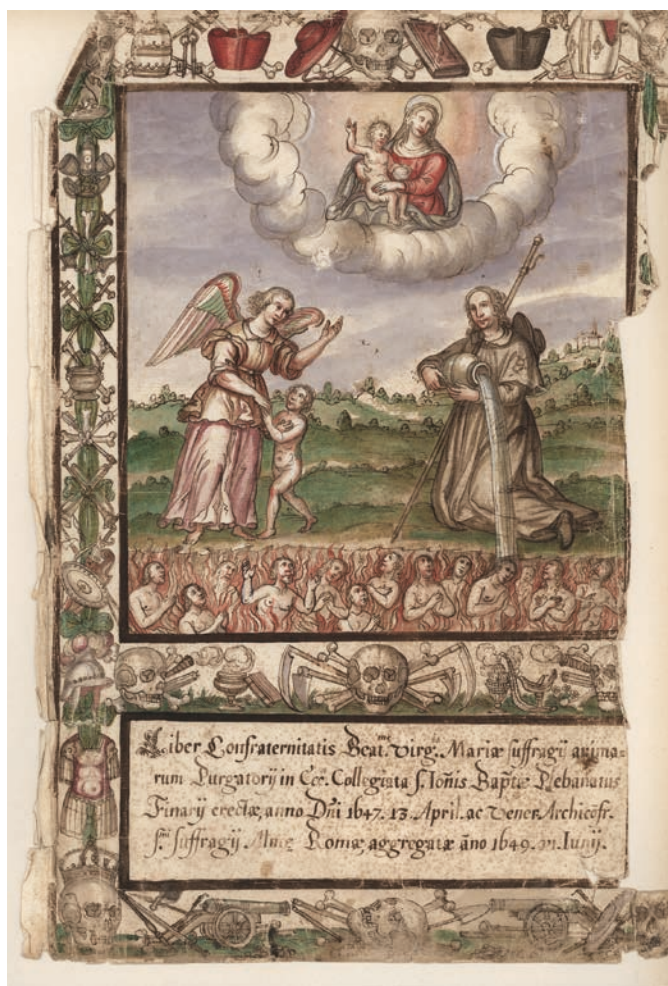 Liber Confraternitatis Beat.me Virg. Mariæ suffragij anima-
rum Purgatorij in Ecc. Collegiata S. Io͞nis Bap͞tæ Plebanatus
Finarij erectæ, anno D͞ni 1647. 13. April. ac Vener. Archico͞fr.
suffragij Almæ Romæ, aggregatæ a͞no 1649. Iunij.